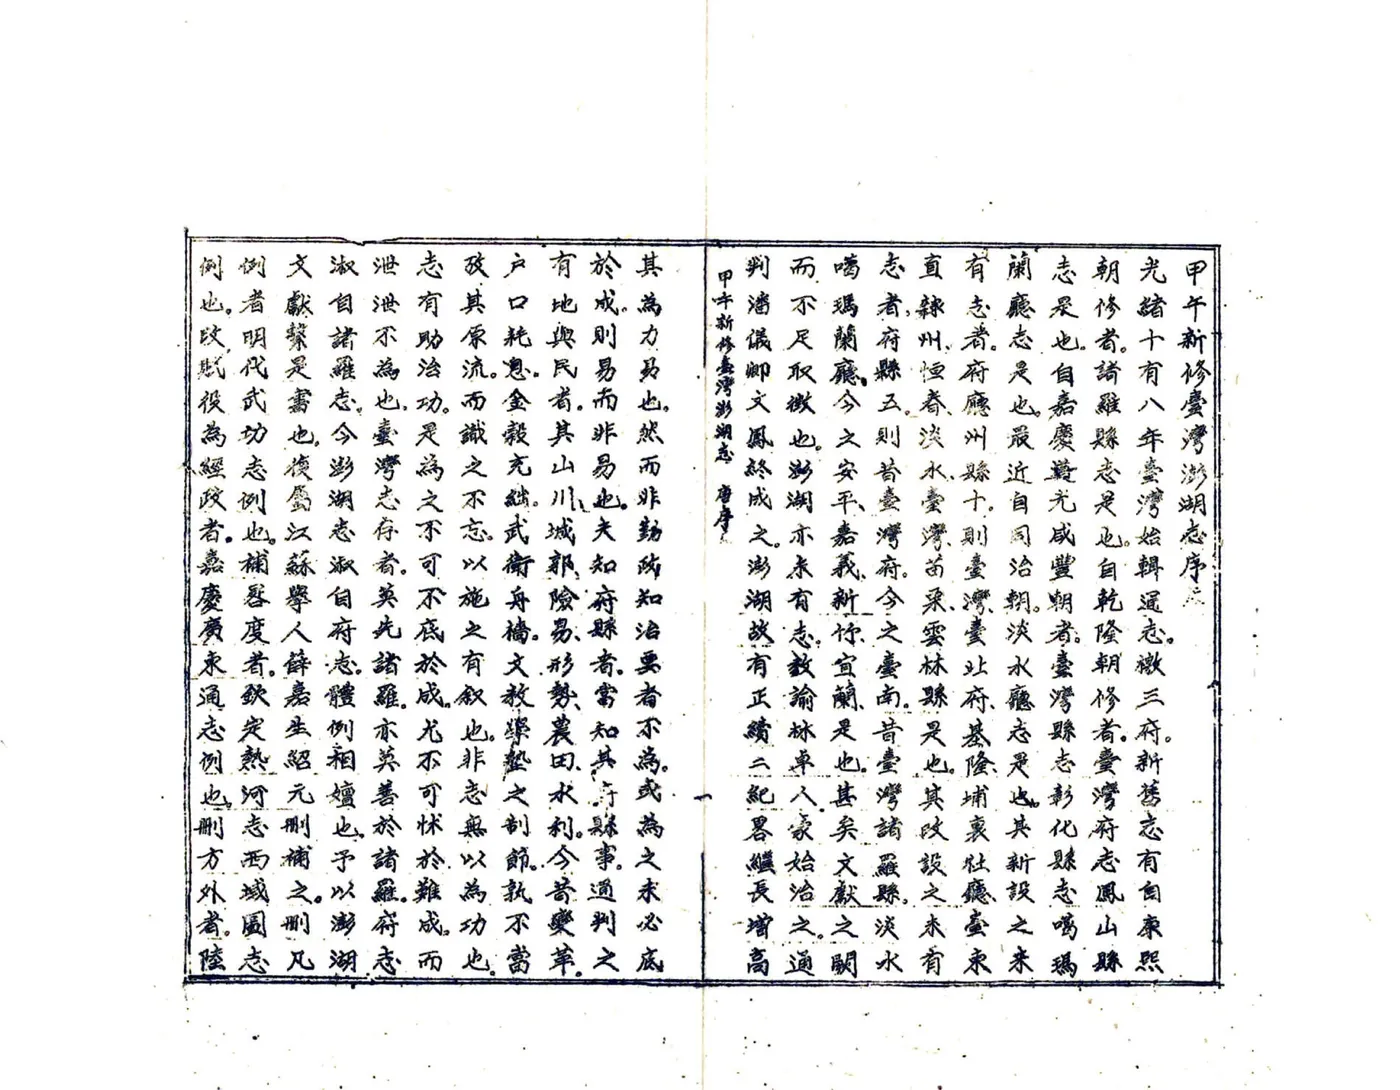 甲午新修臺灣澎湖志序
光緒十有八年臺灣始輯通志。檄三府。新舊志有自康熙
朝修者。諸羅縣志是也。自乾隆朝修者。臺灣府志鳳山縣
志是也。自嘉慶暨光咸豐朝者。臺灣縣志彰化縣志噶瑪
蘭廳志是也。最近自同治朝。淡水廳志是也。其新設之未
有志者。府廳州縣十。則臺灣、臺北府、基隆、埔裏社廳、臺東
直隸州、恒春、淡水、臺灣、苗栗、雲林縣是也。其改設之未有
志者。府縣五。則昔臺灣府。今之臺南。昔臺灣諸羅縣。淡水
噶瑪蘭廳。今之安平、嘉義、新竹、宜蘭、是也。甚矣文獻之闕
而不足取徵也。澎湖亦未有志。教諭林卓人豪始治之。通
判潘儀卿文鳳終成之。澎湖故有正續二紀畧繼長增高
甲午新修臺灣澎湖志 唐序
其為力易也。然而非勤政知治要者不為。或為之未必底
於成。則易而非易也。夫知府縣者。當知其府縣事。通判之
有地與民者。其山川、城郭、險易、形勢、農田、水利。今昔變革。
戶口耗息。金穀充絀。武衛舟檣。文教學塾之制節。孰不當
攷其原流。而識之不忘。以施之有叙也。非志無以為功也。
志有助治功。是為之不可不底於成。尤不可怵於難成。而
泄泄不為也。臺灣志存者。英先諸羅。亦英善於諸羅。府志
淑自諸羅志。今澎湖志淑自府志。體例相嬗也。予以澎湖
文獻槩是書也。復屬江蘇舉人薛嘉生紹元刪補之。刪凡
例者明代武功志例也。補晷度者。欽定熱河志西域圖志
例也。改賦役為經政者。嘉慶廣東通志例也。刪方外者。陸